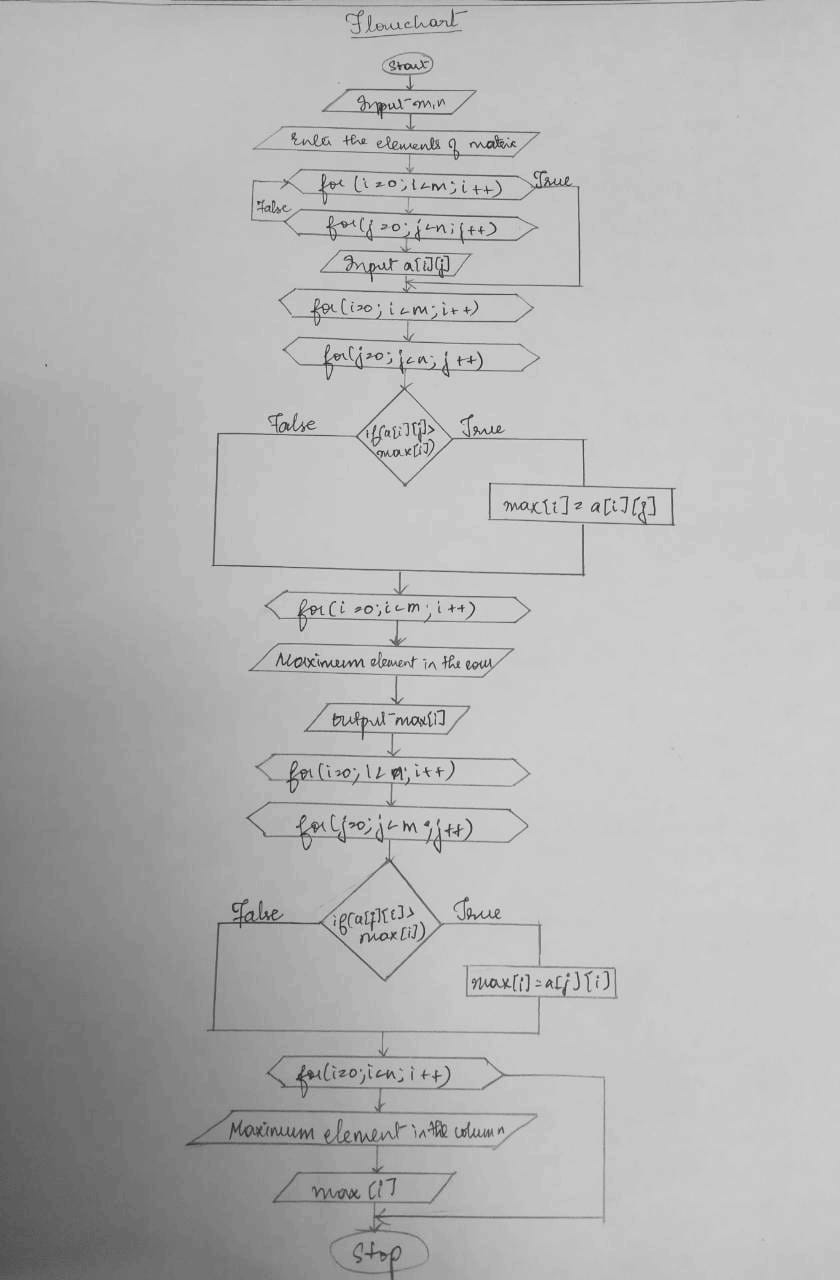 Flowchart
Start
Input m,n
Enter the elements of matrix
for (i=0; i<m; i++)
True
False
for(j=0; j<n; j++)
Input a[i][j]
for(i=0; i<m; i++)
for(j=0; j<n; j++)
False
if(a[i][j]>
max[i])
True
max[i] = a[i][j]
for(i=0; i<m; i++)
Maximum element in the row
output max[i]
for(i=0; i<n; i++)
for(j=0; j<m; j++)
False
if(a[j][i]>
max[i])
True
max[i]=a[j][i]
for(i=0; i<n; i++)
Maximum element in the column
max[i]
Stop